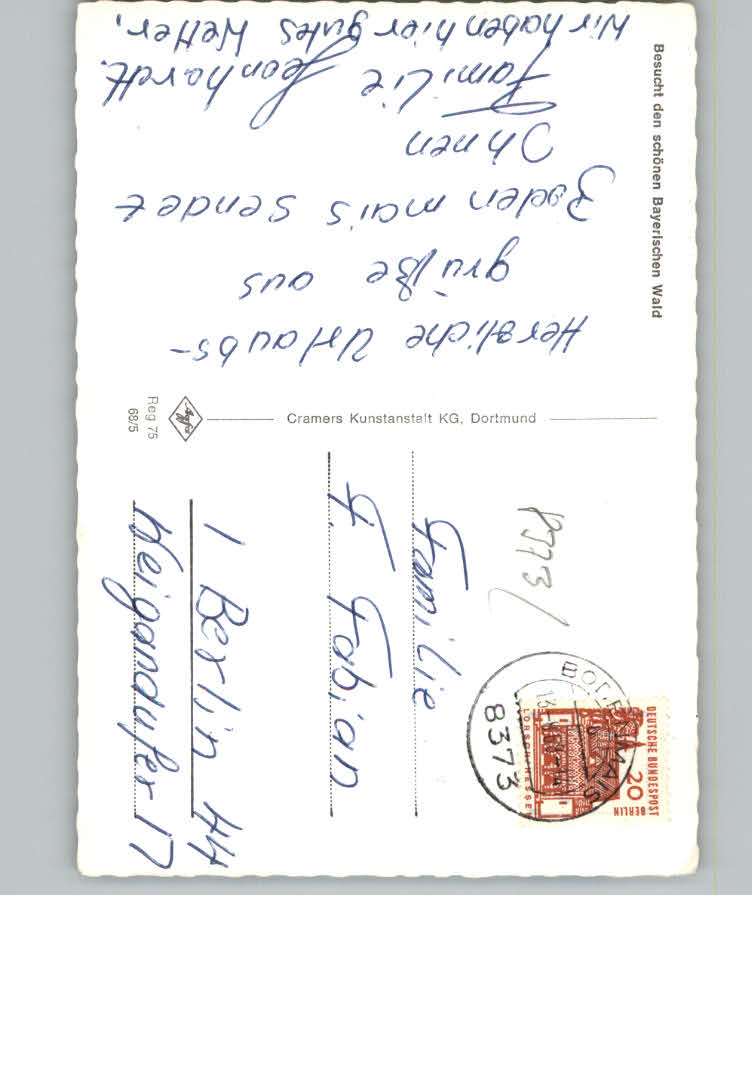 Besucht den schönen Bayerischen Wald
Herzliche Urlaubs-
grüße aus
Bodenmais sendet
Ihnen
Familie Leonhardt.
Wir haben hier gutes Wetter.
Cramers Kunstanstalt KG, Dortmund
Agfa
Reg 75
68/5
DEUTSCHE BUNDESPOST
BERLIN
20
LORSCH/HESSEN
BODENMAIS
8373
Familie
F. Fabian
1 Berlin 44
Weigandufer 17